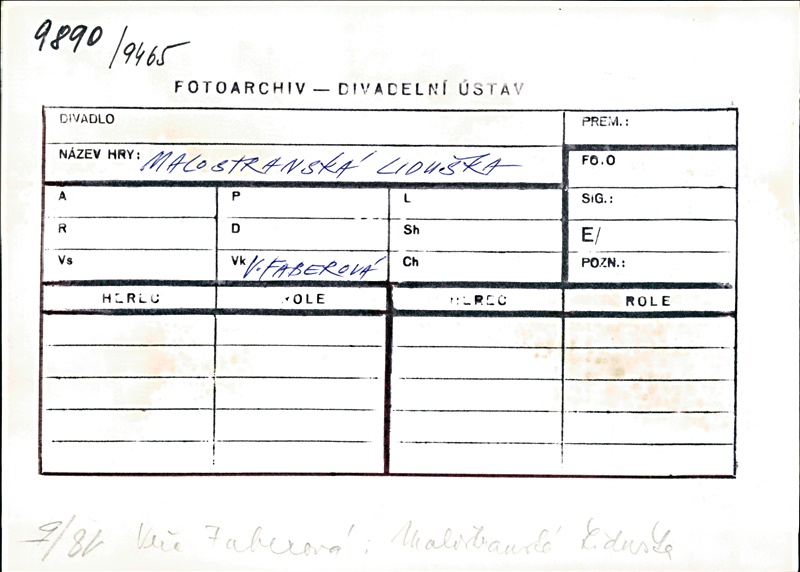 9890/9465
FOTOARCHIV — DIVADELNÍ ÚSTAV
DIVADLO PREM.:
NÁZEV HRY: MALOSTRANSKÁ LIDUŠKA FO.O
A P L SIG.:
R D Sh E/
Vs Vk V. FABEROVÁ Ch POZN.:
HEREC ROLE HEREC ROLE
Faberová: Malostranská Liduška